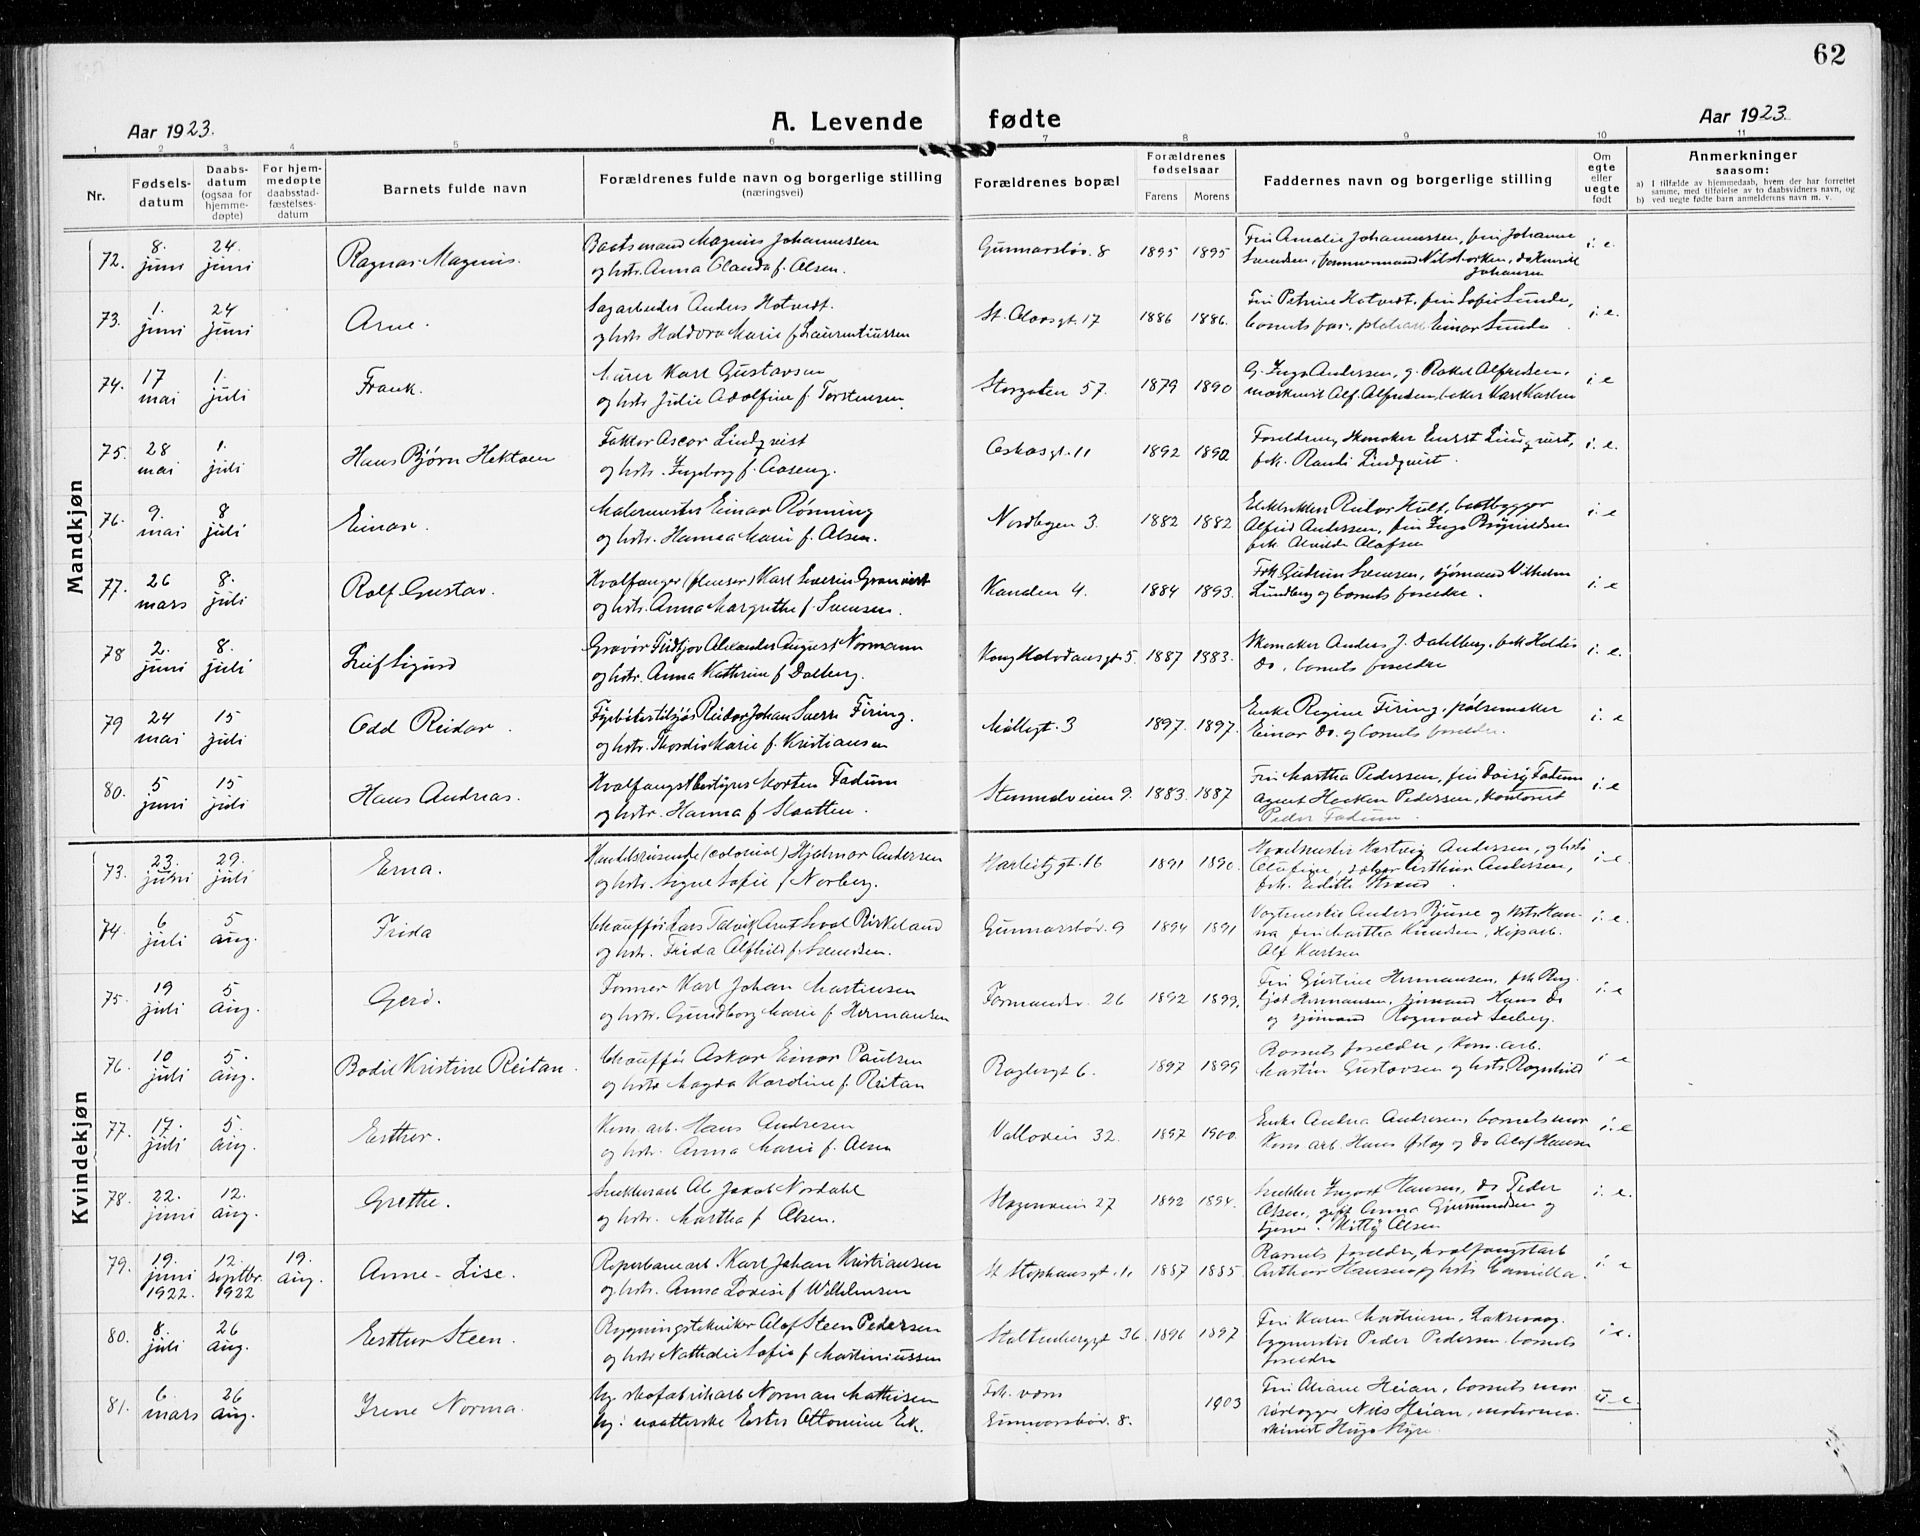 62
Aar 1923.
A. Levende fødte
Aar 1923.
1 2 3 4 5 6 7 8 9 10 11
Nr.
Fødsels-
datum
Daabs-
datum
(ogsaa for
hjemme-
døpte)
For hjem-
medøpte
daabsstad-
fæstelses-
datum
Barnets fulde navn
Forældrenes fulde navn og borgerlige stilling
(næringsvei)
Forældrenes bopæl
Forældrenes
fødselsaar
Farens Morens
Faddernes navn og borgerlige stilling
Om
egte
eller
uegte
født
Anmerkninger
saasom:
a) I tilfælde av hjemmedaab, hvem der har forrettet
samme, med tilføielse av to daabsvidners navn, og
b) ved uegte fødte barn anmelderens navn m. v.
Mandkjøn
72. 8. juni 24. juni Ragnar Magnus. Baatsmand Magnus Johannessen
og hstr. Anna Olanda f. Olsen. Gunnarsbøv. 8 1895 1895 Fru Amalie Johannessen, fru Johanne
Svendsen, tømmermand Nils Lorken, do Henrik
Johansen i. e.
73. 1. juni 24 juni Arne. Sagarbeider Anders Hotvedt.
og hstr. Haldora Marie f. Laurentiussen St. Olavsgt. 17 1886 1886. Fru Petrine Hotvedt, fru Sofie Sunde,
barnets far, Einar Sunde i. e.
74. 17 mai 1. juli Frank. Murer Karl Gustavsen
og hstr. Julie Adolfine f. Torstensen. Storgaten 57. 1879 1890 G. Inga Andersen, g. Rakel Alfredsen,
maskinist Alf. Alfredsen, Karl Karlsen i. e
75. 28 mai 1. juli Hans Bjørn Hektoen Faktor Oscar Lindqvist
og hstr. Ingeborg f. Aaseng. Oskarsgt. 11 1892 1892 Foreldrene, Skomaker Ernst Lindqvist,
frk. Randi Lindqvist. i. e.
76. 9. mai 8 juli Einar. Malermester Einar Rønning
og hstr. Hanna Marie f. Olsen. Nordbyen 3. 1882 1882 Elektriker Reidar Hult, baatbygger
Alfred Andersen, fru Inga Brynildsen
frk. Alvilde Olafsen i. e
77. 26 mars 8. juli Rolf Gustav. Hvalfanger (flenser) Karl Severin Granqvist
og hstr. Anna Margrethe f. Svensen. Kanalen 4. 1884 1893. Frk Gudrun Svensen, sjømand Wilhelm
Lundberg og barnets foreldre. i. e
78 2. juni 8. juli Leif Sigurd Gravør Fridtjov Alexander August Normann
og hstr. Anna Kathrine f Dalberg. Kong Halvdansgt. 5. 1887 1883. Skomaker Anders J. Dahlberg, frk Haldis
Do, barnets foreldre i. e.
79 24 mai 15 juli Odd Reidar. Fyrbøter tilsjøs Reidar Johan Sverre Firing.
og hstr. Thordis Marie f. Kristiansen Møllegt. 3 1897. 1897. Enke Regine Firing, pølsemaker
Einar Do. og barnets foreldre. i. e
80. 5 juni 15 juli Hans Andreas. Hvalfangstbestyrer Morten Fadum
og hstr. Hanna f. Slaatten. 9. 1883. 1887 Fru Martha Pedersen, fru Daisy Fadum
agent Haakon Pedersen, kontorist
Peder Fadum. i. e
Kvindekjøn
73. 23. juni 29. juli Erna. Handelsreisende (colonial) Hjalmar Andersen
og hstr. Signe Sofie f Norberg. Harbitzgt. 16 1891 1890. Hartvig Andersen, og hstr.
Olufine, Arthur Andersen,
frk. Edith Strand. i. e.
74. 6 juli 5 aug. Frida Chauffør Lars Birkeland
og hstr. Frida Alfhild f. Svendsen. Gunnarsbøv. 9 1894 1891 Vogtmester Anders Bjune og hstr. Han-
na fru Martha Knudsen, skipsarb.
Alf Karlsen i. e.
75. 19 juli 5 aug. Gerd. Former Karl Johan Martinsen
og hstr. Gundborg Marie f Hermansen Formandsv. 26 1892 1899. Fru Gustine Hermansen, frk Berg-
ljot Hermansen, sjømand Hans Do
og sjømand Ragnvald Seeberg. i. e
76. 10 juli 5. aug. Bodil Kristine Reitan. Chauffør Oskar Einar Paulsen
og hstr Magda Karoline f. Reitan Roglergt 6. 1897 1899 Barnets foreldre, Kom. arb.
Martin Gustavsen og hstr Ragnhild i. e
77. 17. juli 5. aug. Esther. Kom. arb. Hans Andresen
og hstr. Anna Marie f. Olsen Valløvein 32. 1897 1900 Enke Andrea Andresen, barnets mor
Kom arb. Hans Øslag og Do Olaf Hansen i. e
78. 22. juni 12. aug. Grethe. Ole Jakob Nordahl
og hstr. Martha f Olsen. Hogenveien 27 1892 1894. Ingvar Hansen, do Peder
Olsen, gift Anna Gjurmundsen og
tjener. Mitty Olsen i. e.
79. 19. juni 1922. 12. septbr. 1922 19. aug. Anne-Lise. Reperbanearb. Karl Johan Kristiansen
og hstr. Anna Lovise f Wilhelmsen St Stephansgt. 11 1887 1885. Barnets foreldre, hvalfangstarb
Arthur Hansen og hstr Camilla. i. e
80. 8. juli 26 aug. Esther Steen. Bygningstekniker Olaf Steen Pedersen
og hstr Nathalie Sofie f Martiniussen Stoltenberggt 36. 1896 1897 Fru Karen Martinsen,
bygmester Peder Pedersen barnets
foreldre i e.
81. 6. mars 26 aug. Irene Norma. Ug. skofabrikarb Norman Mathisen
Ug: Ester Ottomine Eik. Frk. vaas
Gunnarsbøv. 8. 1903 Fru Oliane Heian, barnets mor
rørlegger Nils Heian,
Hugo Myre. u e